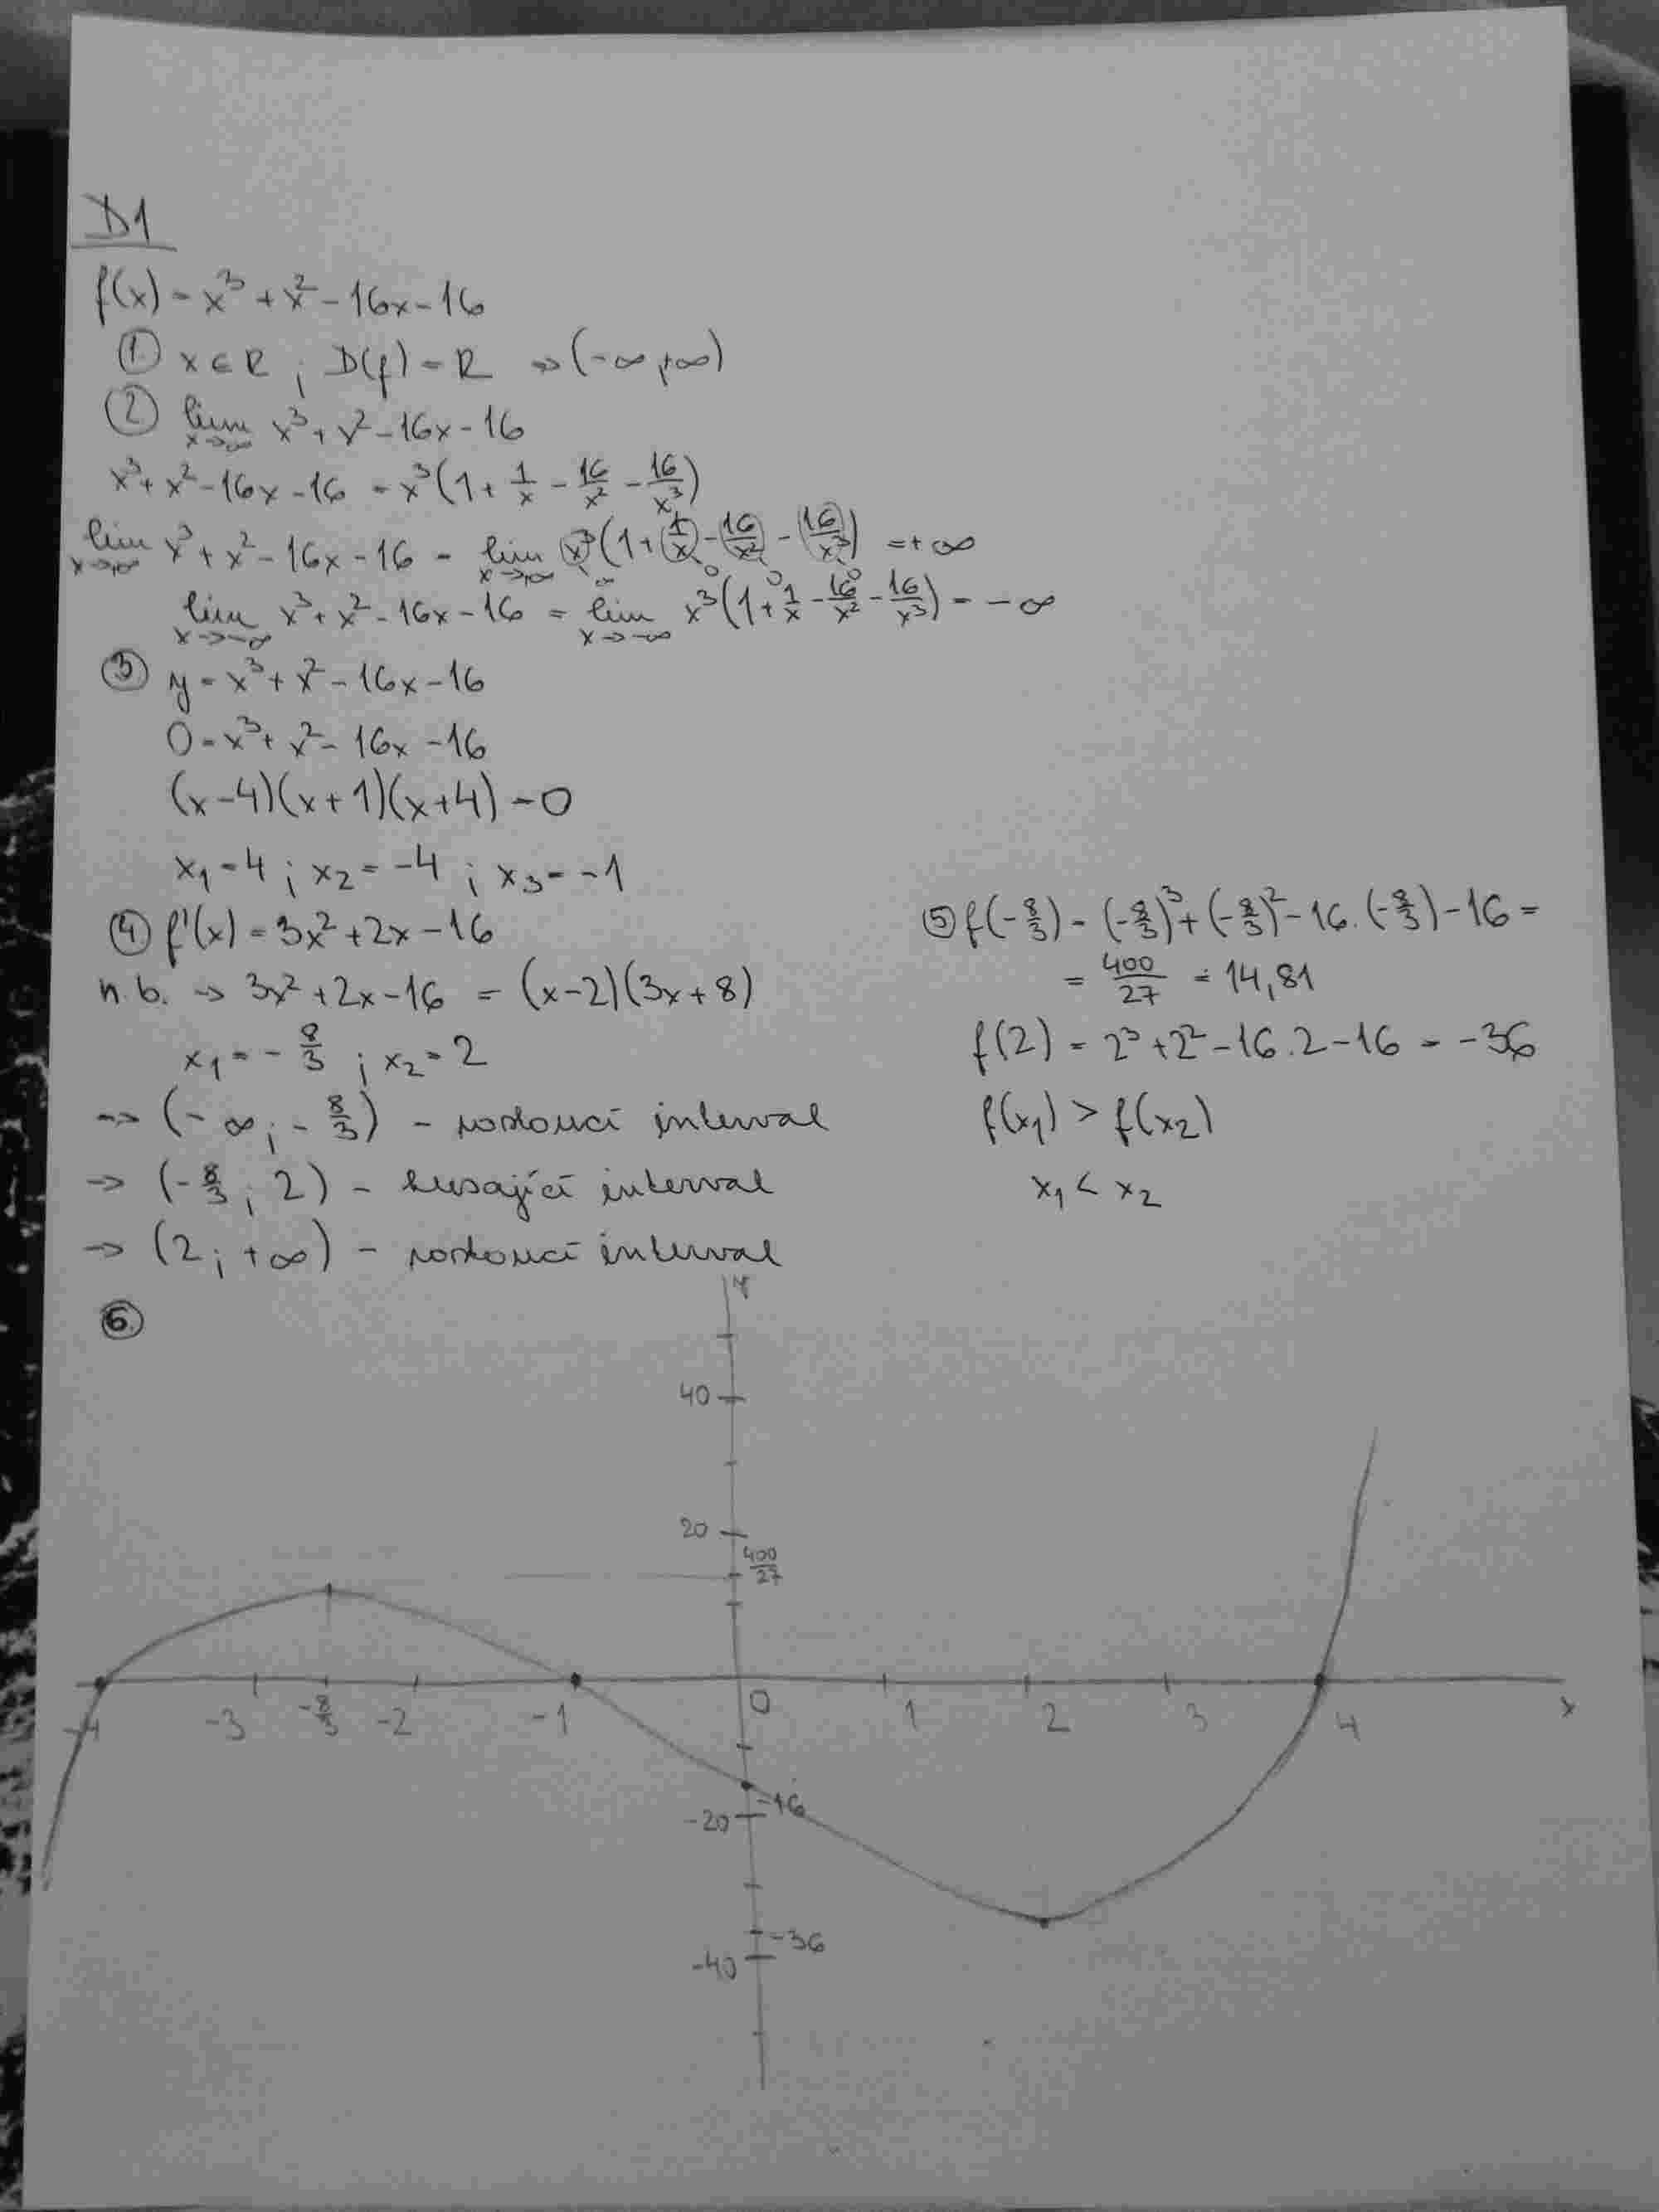 D1
f(x) = x³ + x² - 16x - 16
① x ∈ R ; D(f) = R → (-∞, +∞)
② lim x→∞ x³ + x² - 16x - 16
x³ + x² - 16x - 16 = x³(1 + 1/x - 16/x² - 16/x³)
lim x→∞ x³ + x² - 16x - 16 = lim x→∞ x³(1 + 1/x - 16/x² - 16/x³) = +∞
∞ 0 0 0
lim x→-∞ x³ + x² - 16x - 16 = lim x→-∞ x³(1 + 1/x - 16/x² - 16/x³) = -∞
③ y = x³ + x² - 16x - 16
0 = x³ + x² - 16x - 16
(x-4)(x+1)(x+4) = 0
x₁ = 4 ; x₂ = -4 ; x₃ = -1
④ f'(x) = 3x² + 2x - 16
n.b. → 3x² + 2x - 16 = (x-2)(3x+8)
x₁ = -8/3 ; x₂ = 2
→ (-∞ ; -8/3) - rostoucí interval
→ (-8/3 ; 2) - klesající interval
→ (2 ; +∞) - rostoucí interval
⑤ f(-8/3) = (-8/3)³ + (-8/3)² - 16.(-8/3) - 16 =
= 400/27 = 14,81
f(2) = 2³ + 2² - 16.2 - 16 = -36
f(x₁) > f(x₂)
x₁ < x₂
⑥
y
40
20
400/27
-4 -3 -8/3 -2 -1 0 1 2 3 4 x
-16
-20
-36
-40